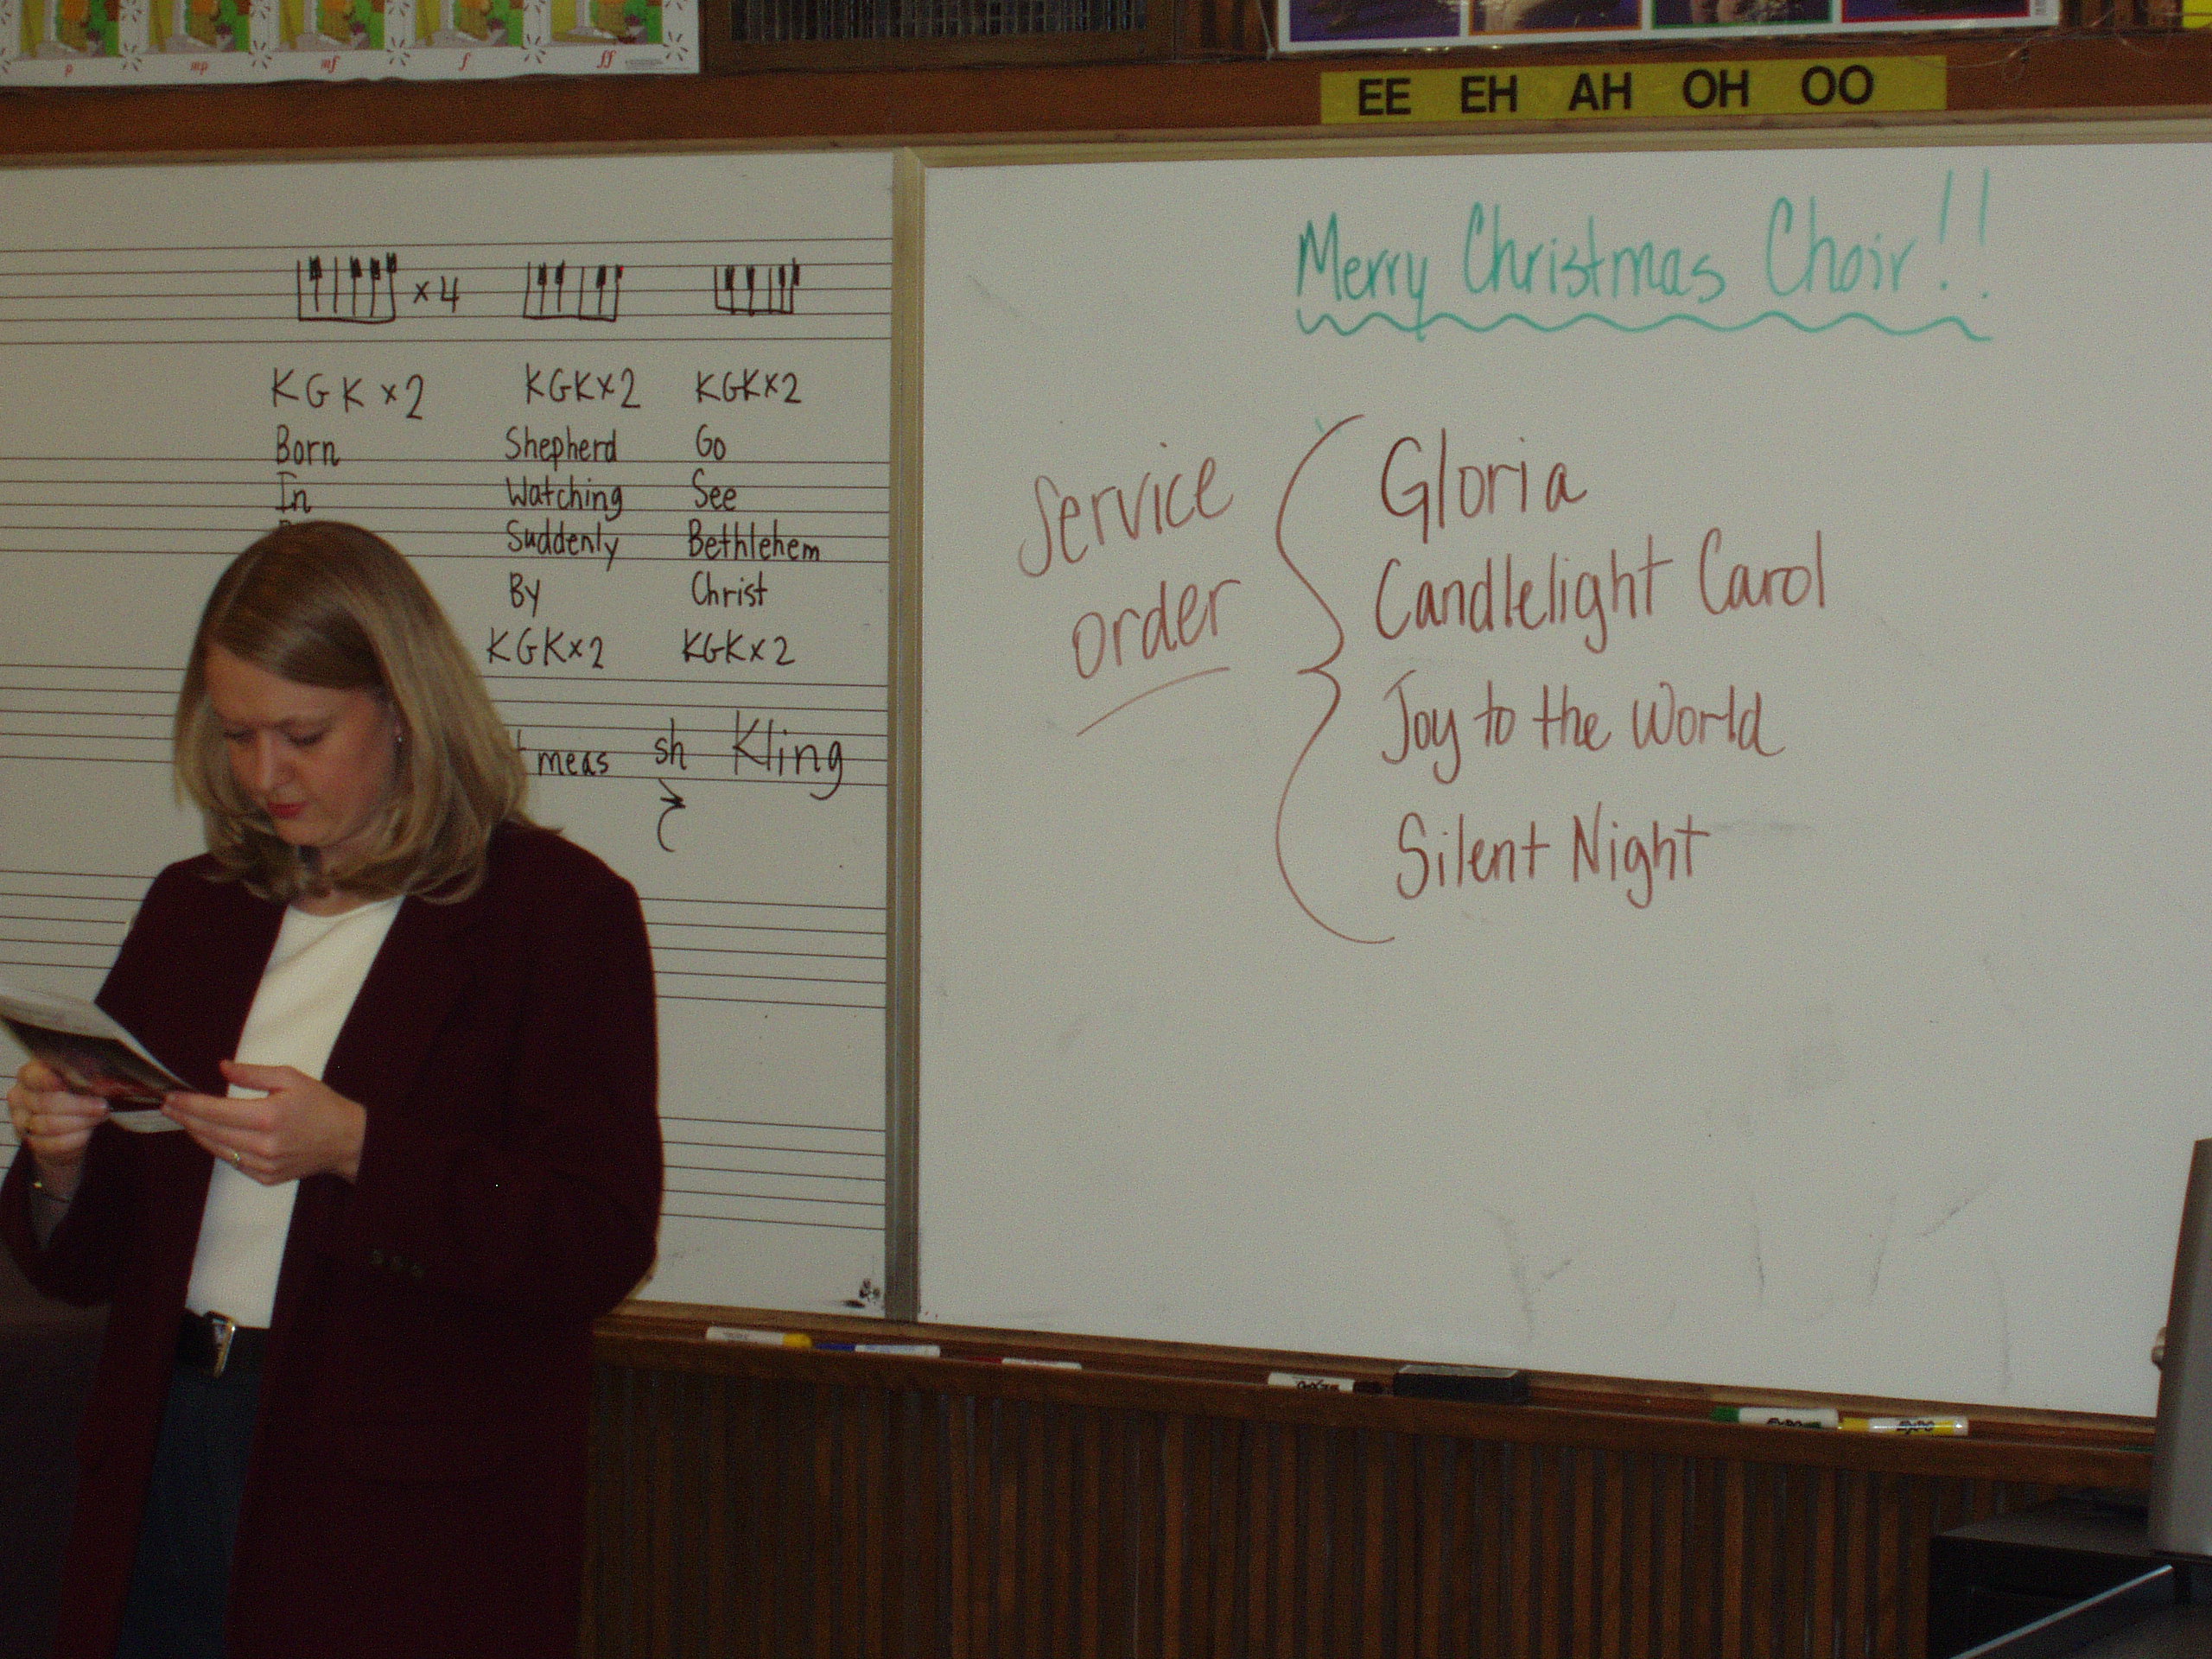 p mp mf f ff
EE EH AH OH OO
x4
KGK x2 KGKx2 KGKx2
Born Shepherd Go
In Watching See
Suddenly Bethlehem
By Christ
KGKx2 KGKx2
meas sh Kling
Merry Christmas Choir!!
Service
order
Gloria
Candlelight Carol
Joy to the World
Silent Night
EXPO
EXPO